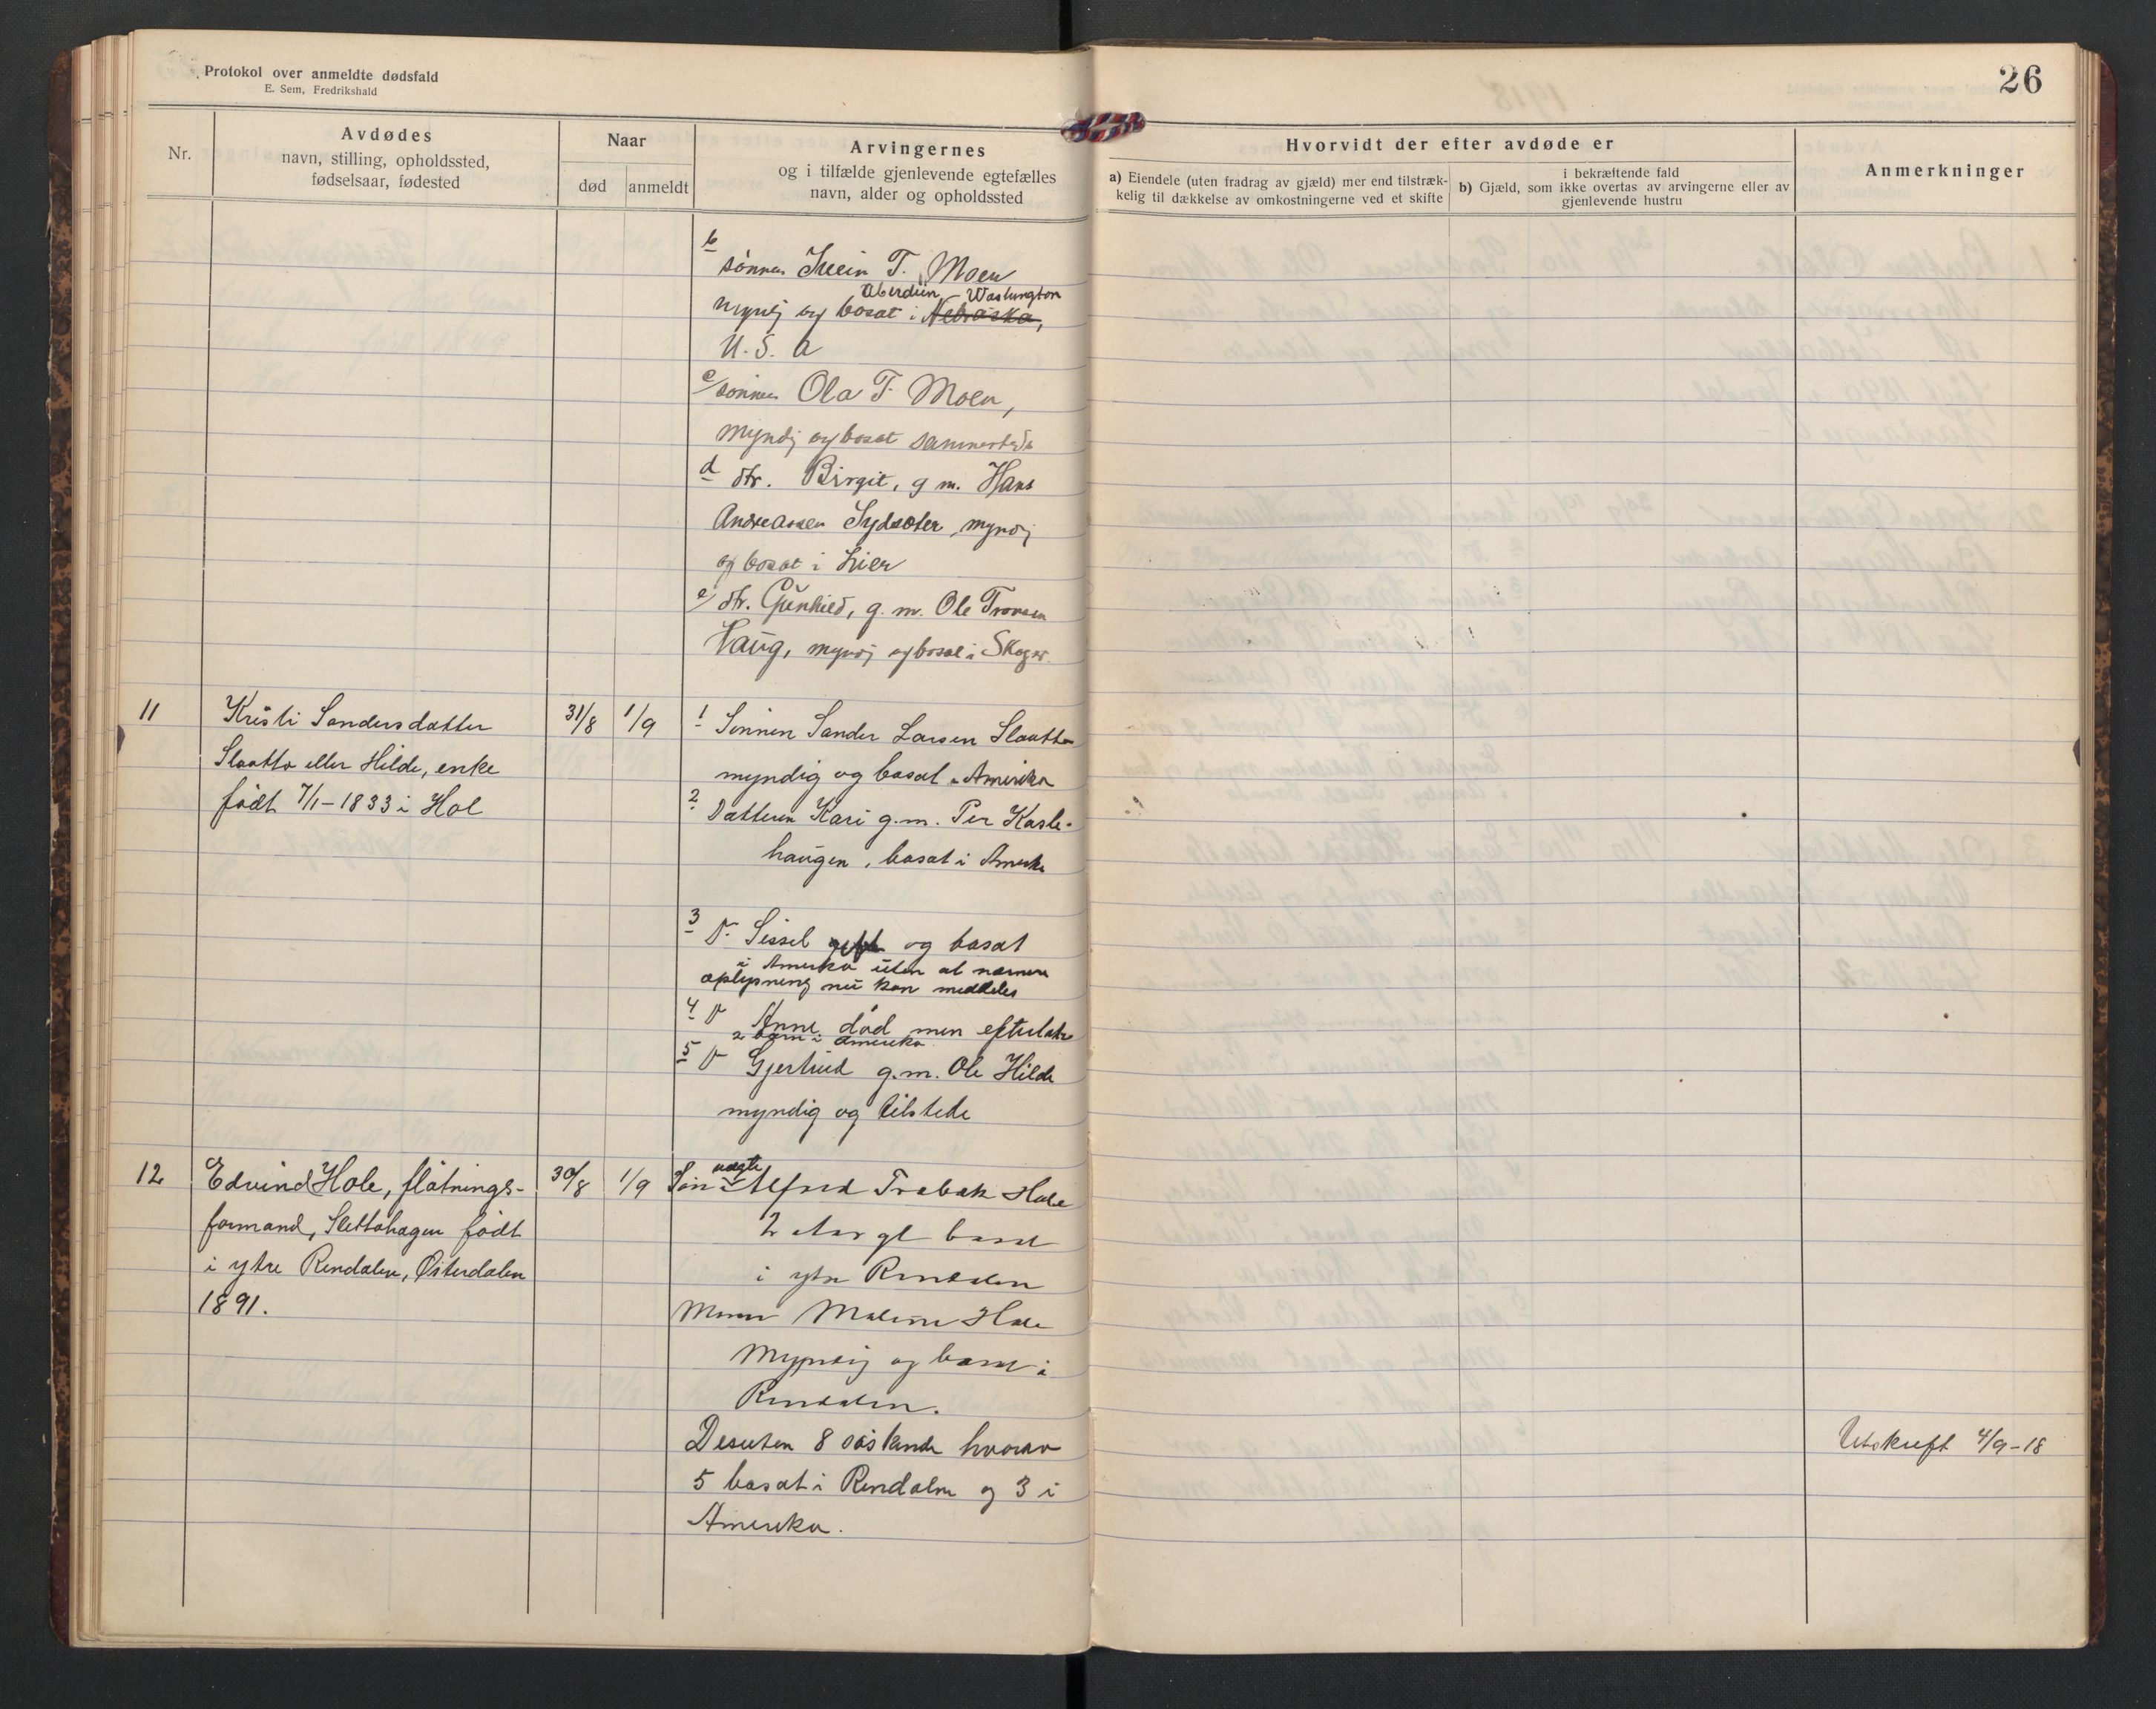 Protokol over anmeldte dødsfald
E. Sem, Fredrikshald
26
Nr.
Avdødes
navn, stilling, opholdssted,
fødselsaar, fødested
Naar
død
anmeldt
Arvingernes
og i tilfælde gjenlevende egtefælles
navn, alder og opholdssted
Hvorvidt der efter avdøde er
a) Eiendele (uten fradrag av gjæld) mer end tilstræk-
kelig til dækkelse av omkostningerne ved et skifte
i bekræftende fald
b) Gjæld, som ikke overtas av arvingerne eller av
gjenlevende hustru
Anmerkninger
b
sønnen Svein T. Moen
Aberdiin Washington
myndig og bosat i Nebraska,
U.S.A
c/ sønnen Ola T. Moen,
myndig og bosat sammesteds
d dtr. Birgit, g m. Hans
Andreassen Sydsæter, myndig
og bosat i Lier
e/ dtr. Gunhild, g. m. Ole Tronsen
Haug, myndig og bosat i Skoger.
11
Kristi Sandersdatter
Slaatto eller Hilde, enke
født 7/1-1833 i Hol
31/8
1/9
1 Sønnen Sander Larsen Slaatto
myndig og bosat i Amerika
2 Datteren Kari g.m. Per Kasle-
haugen, bosat i Amerika
3 D. Sissel gift og bosat
i Amerika uten at nærmere
oplysning nu kan meddeles
4 D Anne død men efterlater
2 barn i Amerika
5 D Gjertrud g.m. Ole Hilde
myndig og tilstede
12
Edvind Hole, fløtnings-
formand, Slettohagen født
i ytre Rendalen, Østerdalen
1891.
30/8
1/9
uegte
Søn Alfred Trøbak Hole
2 Aar gl bosat
i ytre Rendalen
Moren Maline Hole
Myndig og bosat i
Rendalen.
Desuten 8 søskende hvorav
5 bosat i Rendalen og 3 i
Amerika.
Utskrift 4/9-18